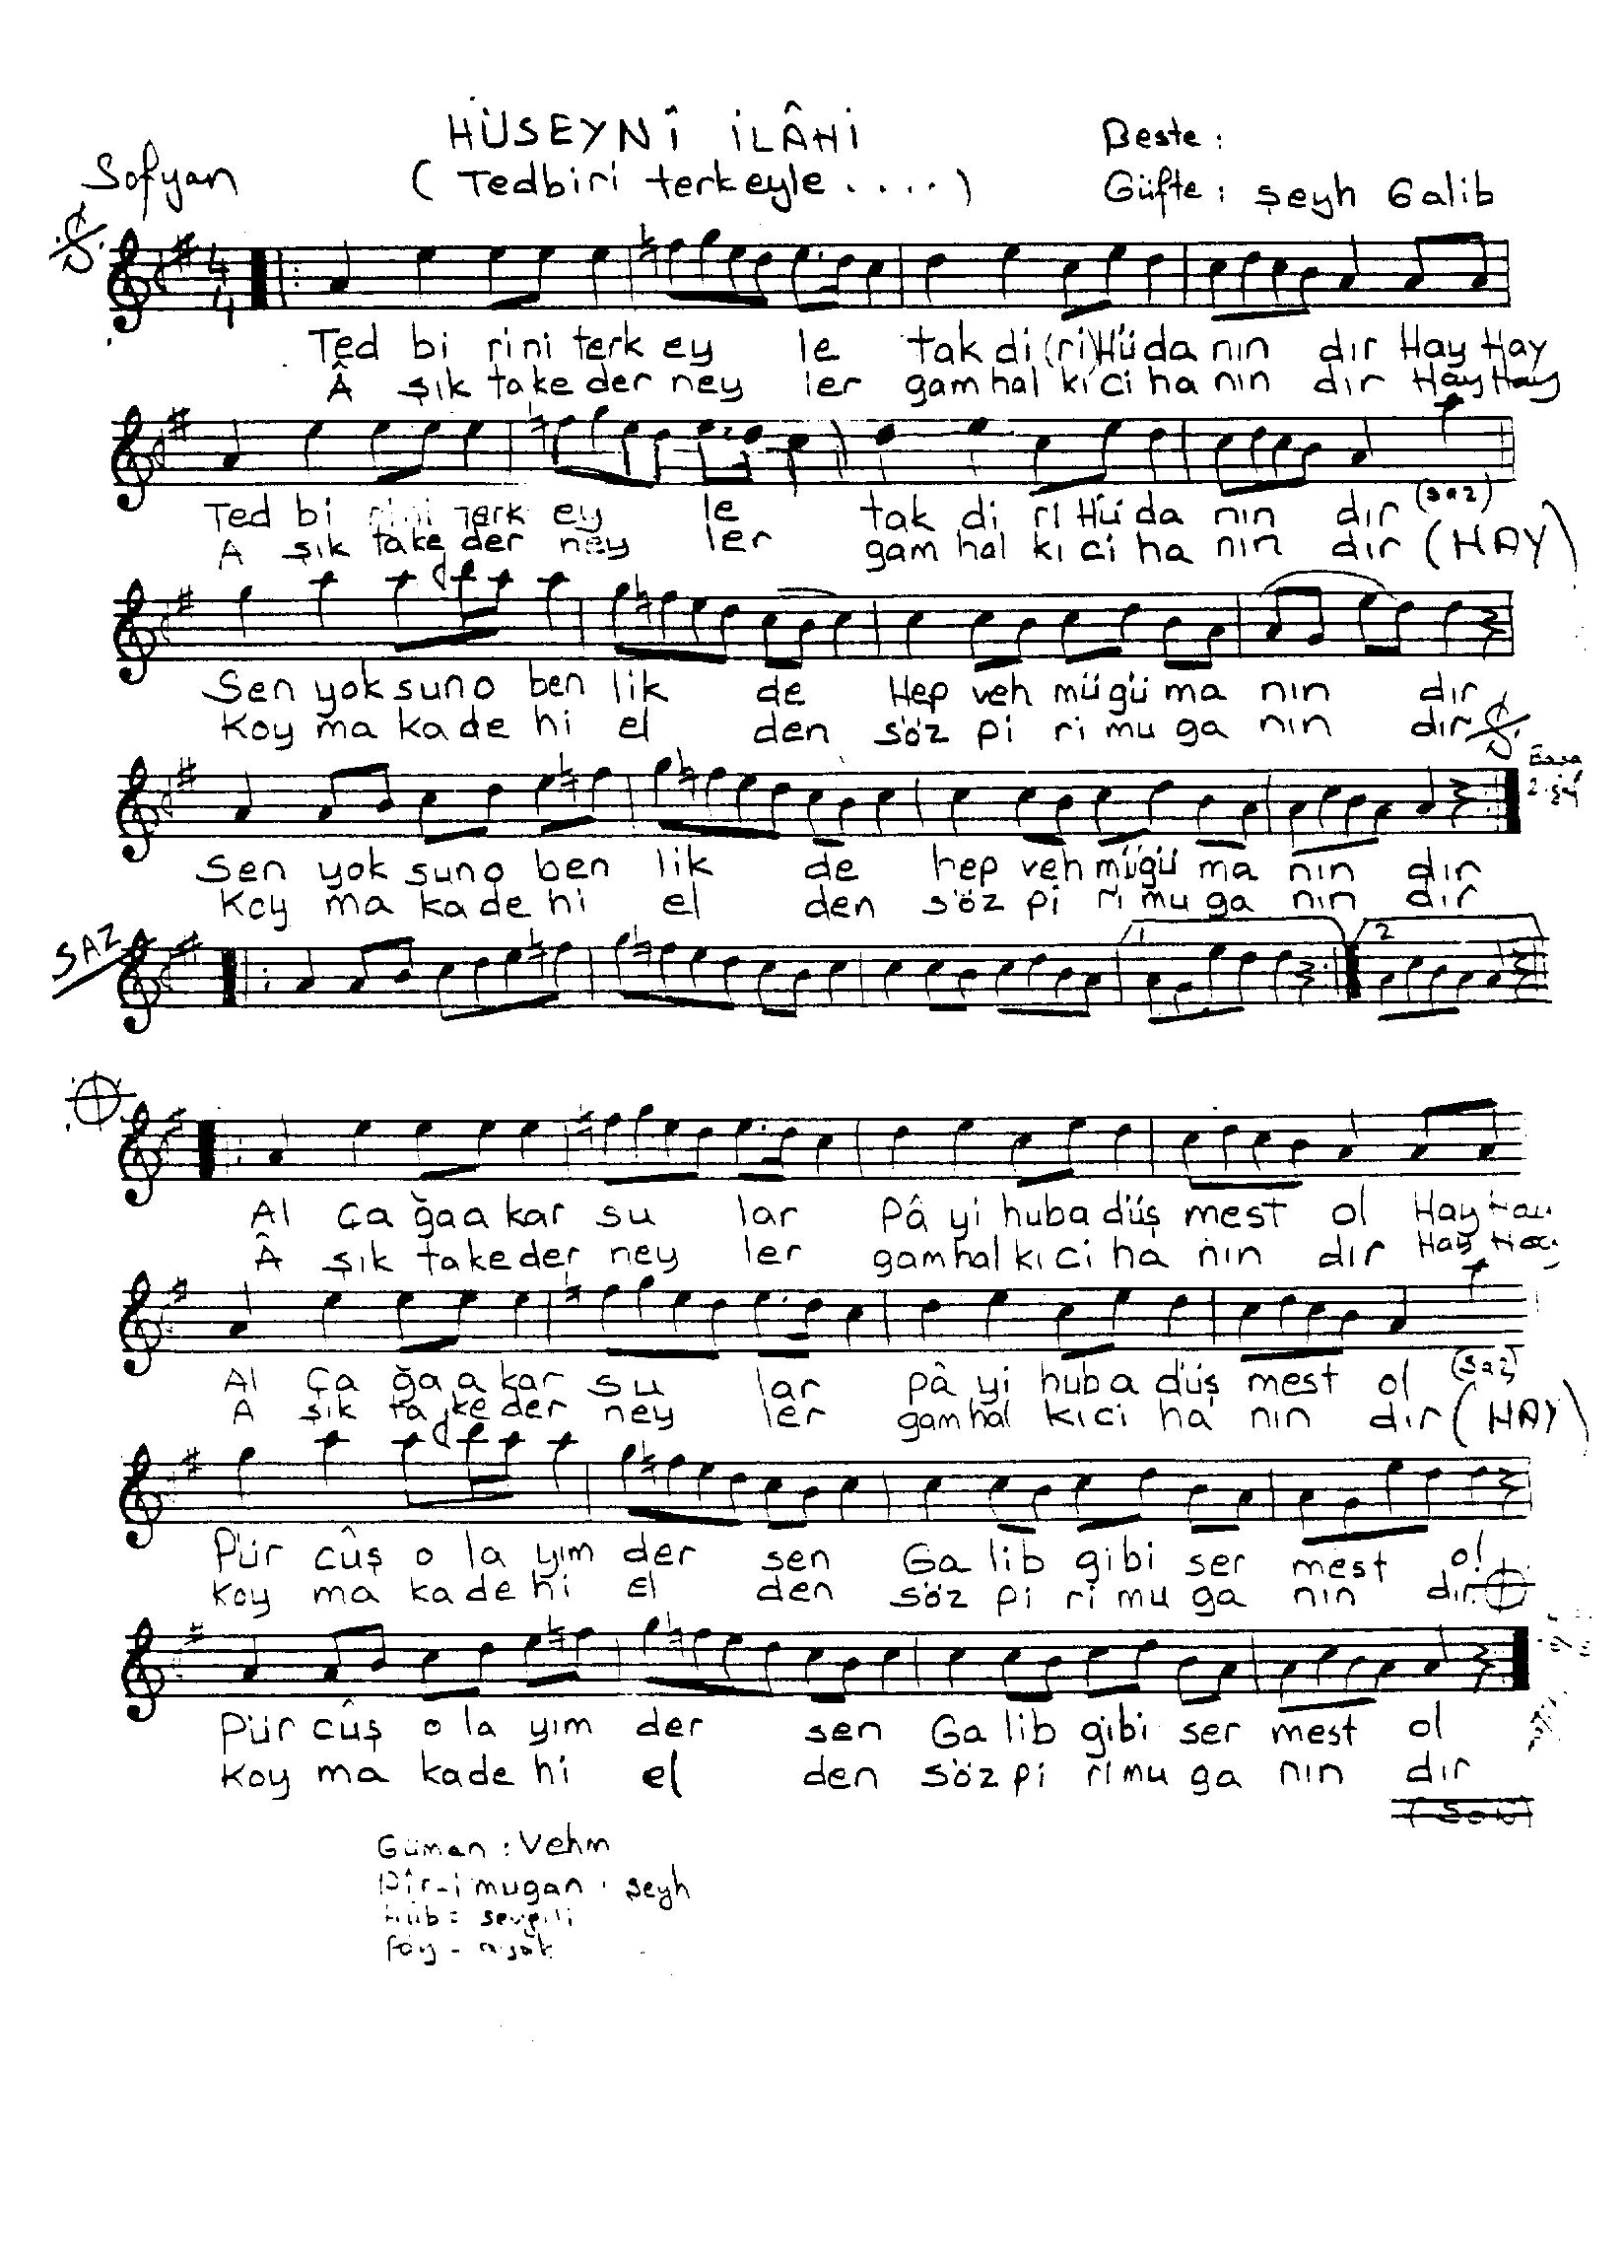 HÜSEYNÎ İLÂHİ
Beste :
Sofyan
( Tedbiri terkeyle . . . . )
Güfte : Şeyh Galib
4
4
Ted bi rini terk ey le tak di (ri) Hü da nın dır Hay Hay
 şık ta ke der ney ler gam hal kı ci ha nın dır Hay Hay
Ted bi rini terk ey le tak di ri Hü da nın dır (saz)
A şık ta ke der ney ler gam hal kı ci ha nın dır (HAY)
Sen yok suno ben lik de Hep veh mü gü ma nın dır
Koy ma ka de hi el den söz pi ri mu ga nın dır
Sen yok suno ben lik de hep veh mü gü ma nın dır
Koy ma ka de hi el den söz pi ri mu ga nın dır
SAZ
1
2
Al Ça ğa a kar su lar Pâ yi huba düş mest ol Hay
 şık ta ke der ney ler gam hal kı ci ha nın dır Hay
Al Ça ğa a kar su lar pâ yi huba düş mest ol (saz)
A şık ta ke der ney ler gam hal kı ci ha nın dır (HAY)
Pür cûş o la yım der sen Ga lib gibi ser mest ol
Koy ma ka de hi el den söz pi ri mu ga nın dır
Pür cûş o la yım der sen Ga lib gibi ser mest ol
Koy ma ka de hi el den söz pi ri mu ga nın dır
(Son)
Güman : Vehm
Pîr-i mugan : şeyh
Hûb : sevgili